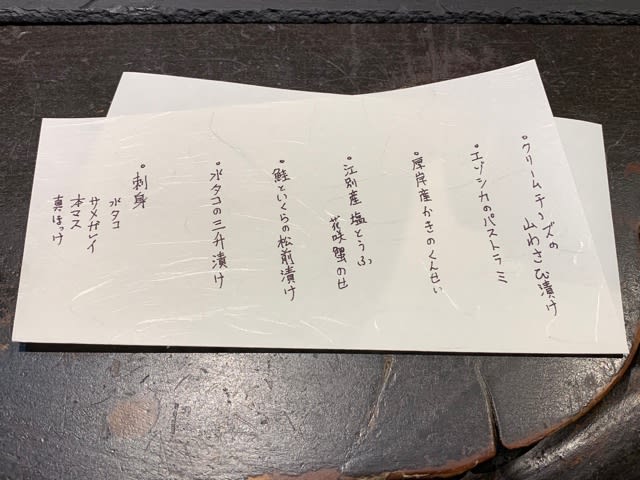 ・クリームチーズの
山わさび漬け
・エゾシカのパストラミ
・厚岸産かきのくんせい
・江別産 塩とうふ
花咲蟹のせ
・鮭といくらの松前漬け
・水タコの三升漬け
・刺身
水タコ
サメガレイ
本マス
真ほっけ